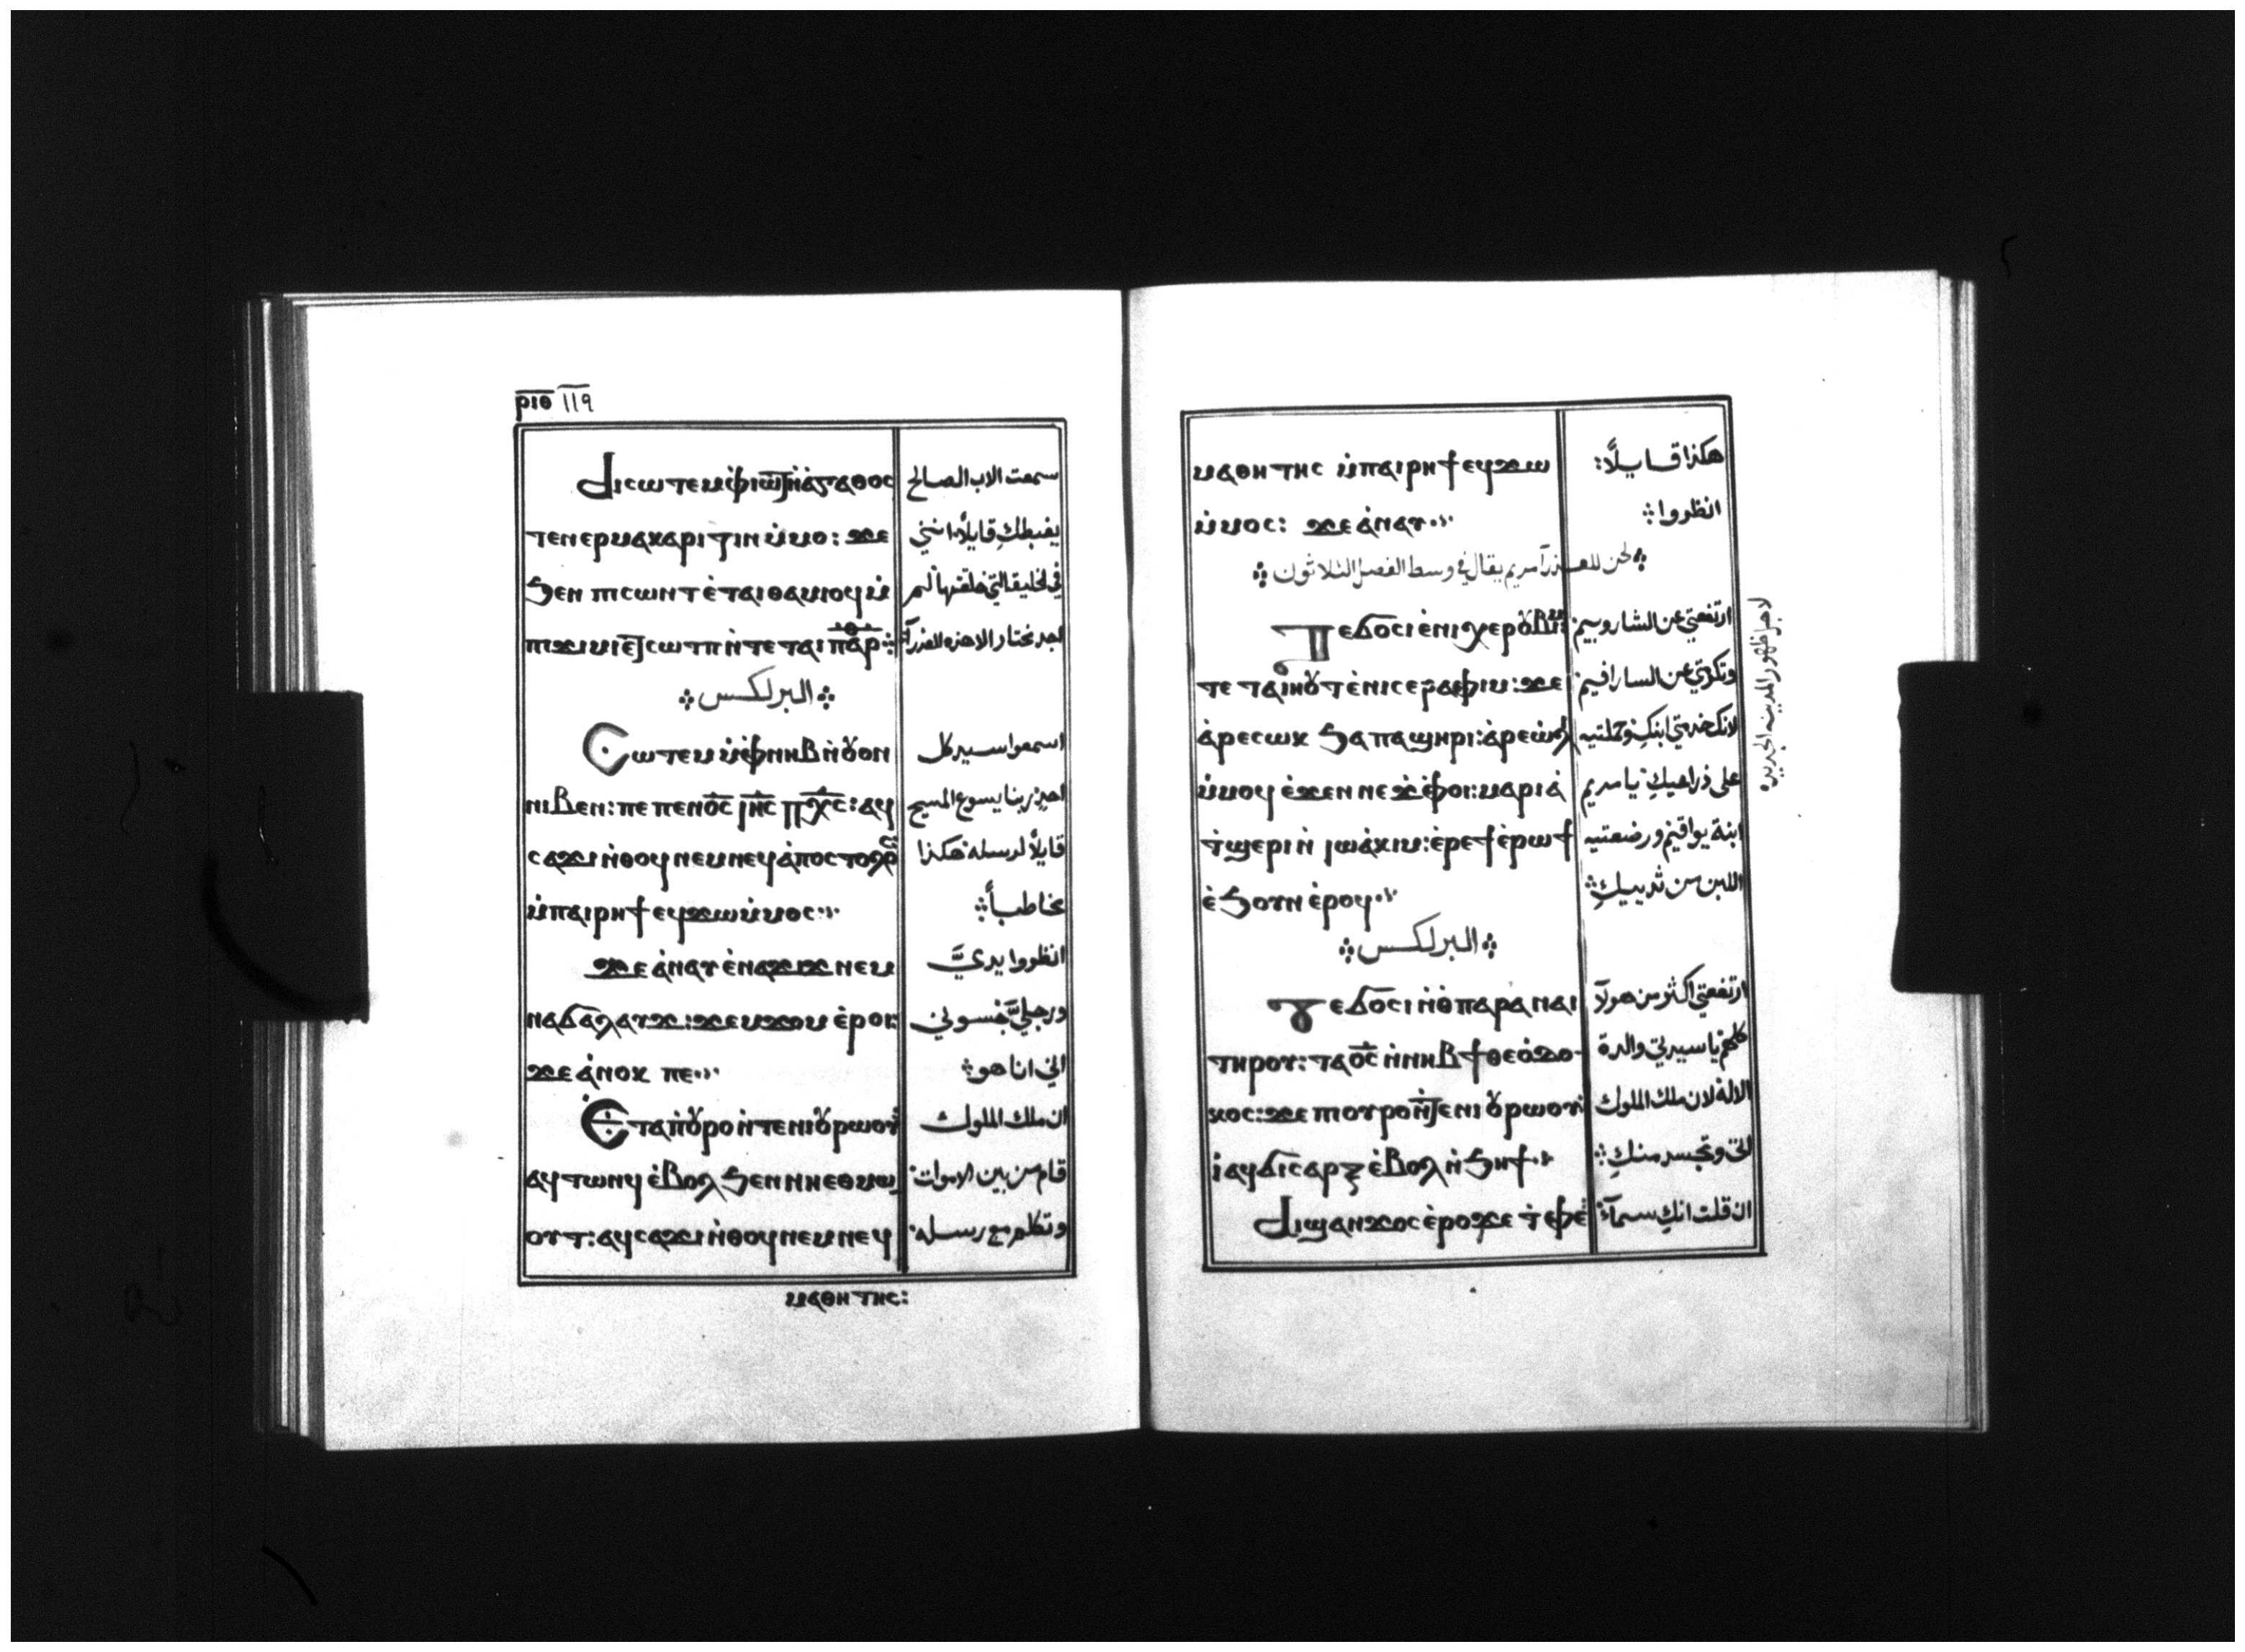 ⲣⲓⲑ 119
ⲁⲓⲥⲱⲧⲉⲙ ⲙ̀ⲫⲓⲱⲧ ⲛ̀ⲁ̀ⲅⲁⲑⲟⲥ سمعت الاب الصالح
ⲧⲉⲛⲉⲣⲙⲁⲕⲁⲣⲓⲍⲓⲛ ⲙ̀ⲙⲟ: ϫⲉ يغبطكِ قايلاً اننى
ϧⲉⲛ ⲡⲓⲥⲱⲛⲧ ⲉ̀ⲧⲁⲓⲑⲁⲙⲓⲟϥ ⲙ̀ في الخليقة التي خلقتها لم
ⲡⲓϫⲓⲙⲓ ⲉ̅ϯⲥⲱⲧⲡ ⲛ̀ⲧⲉ ⲧⲁⲓ ⲡⲁⲣ̅ⲑ̅ اجد مختار الا هذه العذرآء
البرلكس
Ⲥⲱⲧⲉⲙ ⲙ̀ⲫⲛⲏⲃ ⲛ̀ⲟⲩⲟⲛ اسمعوا سيد كل
ⲛⲓⲃⲉⲛ: ⲡⲉ ⲡⲉⲛⲟ̅ⲥ̅ ⲓⲏ̅ⲥ̅ ⲡⲭ̅ⲥ̅: ⲁϥ احدٍ ربنا يسوع المسيح
ⲥⲁϫⲓ ⲛ̀ⲑⲟϥ ⲛⲉⲙ ⲛⲉϥⲁ̀ⲡⲟⲥⲧⲟⲗⲟⲥ قايلاً لرسله هكذا
ⲙ̀ⲡⲁⲓⲣⲏϯ ⲉϥϫⲱ ⲙ̀ⲙⲟⲥ مخاطباً
ϫⲉ ⲁ̀ⲛⲁⲩ ⲉ̀ⲛⲁϫⲓϫ ⲛⲉⲙ انظروا يديَّ
ⲛⲁϭⲁⲗⲁⲩϫ: ϫⲉⲙϫⲱⲙ ⲉ̀ⲣⲟⲓ: ورجليَّ جسوني
ϫⲉ ⲁ̀ⲛⲟⲕ ⲡⲉ اني انا هو
Ⲉ̀ⲧⲁⲡⲟⲩⲣⲟ ⲛ̀ⲧⲉ ⲛⲓⲟⲩⲣⲱⲟⲩ ان ملك الملوك
ⲁϥⲧⲱⲛϥ ⲉ̀ⲃⲟⲗ ϧⲉⲛ ⲛⲏⲉⲑⲙⲱ قام من بين الاموات
ⲟⲩⲧ: ⲁϥⲥⲁϫⲓ ⲛ̀ⲑⲟϥ ⲛⲉⲙ ⲛⲉϥ وتكلم مع رسله
ⲙⲁⲑⲏⲧⲏⲥ:
ⲙⲁⲑⲏⲧⲏⲥ ⲙ̀ⲡⲁⲓⲣⲏϯ ⲉϥϫⲱ هكذا قايلاً:
ⲙ̀ⲙⲟⲥ: ϫⲉ ⲁ̀ⲛⲁⲩ انظروا
لحن للعذرآ مريم يقال في وسط الفصل الثلاثون
Ⲧⲉϭⲟⲥⲓ ⲉ̀ⲛⲓⲭⲉⲣⲟⲩⲃⲓⲙ ارتفعتي عن الشاروبيم
ⲧⲉⲧⲁⲓⲏⲟⲩⲧ ⲉ̀ⲛⲓⲥⲉⲣⲁⲫⲓⲙ: ϫⲉ وتكرمتي عن السارافيم
ⲁ̀ⲣⲉⲥⲱⲕ ϧⲁ ⲡⲁϣⲏⲣⲓ: ⲁ̀ⲣⲉⲱⲗⲓ لانكِ خدمتي ابنكِ وحملتيه
ⲙ̀ⲙⲟϥ ⲉ̀ϫⲉⲛ ⲛⲉϫⲫⲟⲓ: ⲙⲁⲣⲓⲁ̀ على ذراعيكِ يا مريم
ϯϣⲉⲣⲓ ⲛ̀ ⲓⲱⲁ̀ⲕⲓⲙ: ⲉ̀ⲣⲉϯⲉ̀ⲣⲱϯ ابنة يواقيم ورضعتيه
ⲉ̀ϧⲟⲩⲛ ⲉ̀ⲣⲟϥ اللبن من ثدييكِ
البرلكس
Ⲧⲉϭⲟⲥⲓ ⲛ̀ⲑⲟ ⲡⲁⲣⲁ ⲛⲁⲓ ارتفعتي اكثر من هولآ
ⲧⲏⲣⲟⲩ: ⲧⲁⲟ̅ⲥ̅ ⲛ̀ⲛⲏⲃ ϯⲑⲉⲟ̀ⲇⲟ كلهم يا سيدتي والدة
ⲕⲟⲥ: ϫⲉ ⲡⲟⲩⲣⲟ ⲛ̀ⲧⲉ ⲛⲓⲟⲩⲣⲱⲟⲩ الاله لان ملك الملوك
ⲓ̀ ⲁϥϭⲓⲥⲁⲣⲝ ⲉ̀ⲃⲟⲗ ⲛ̀ϧⲏϯ اتى وتجسد منكِ
Ⲁⲓϣⲁⲛϫⲟⲥ ⲉ̀ⲣⲟ ϫⲉ ⲧ̀ⲫⲉ ان قلت انكِ سمآء
لاجل ظهور المدينه الجديده